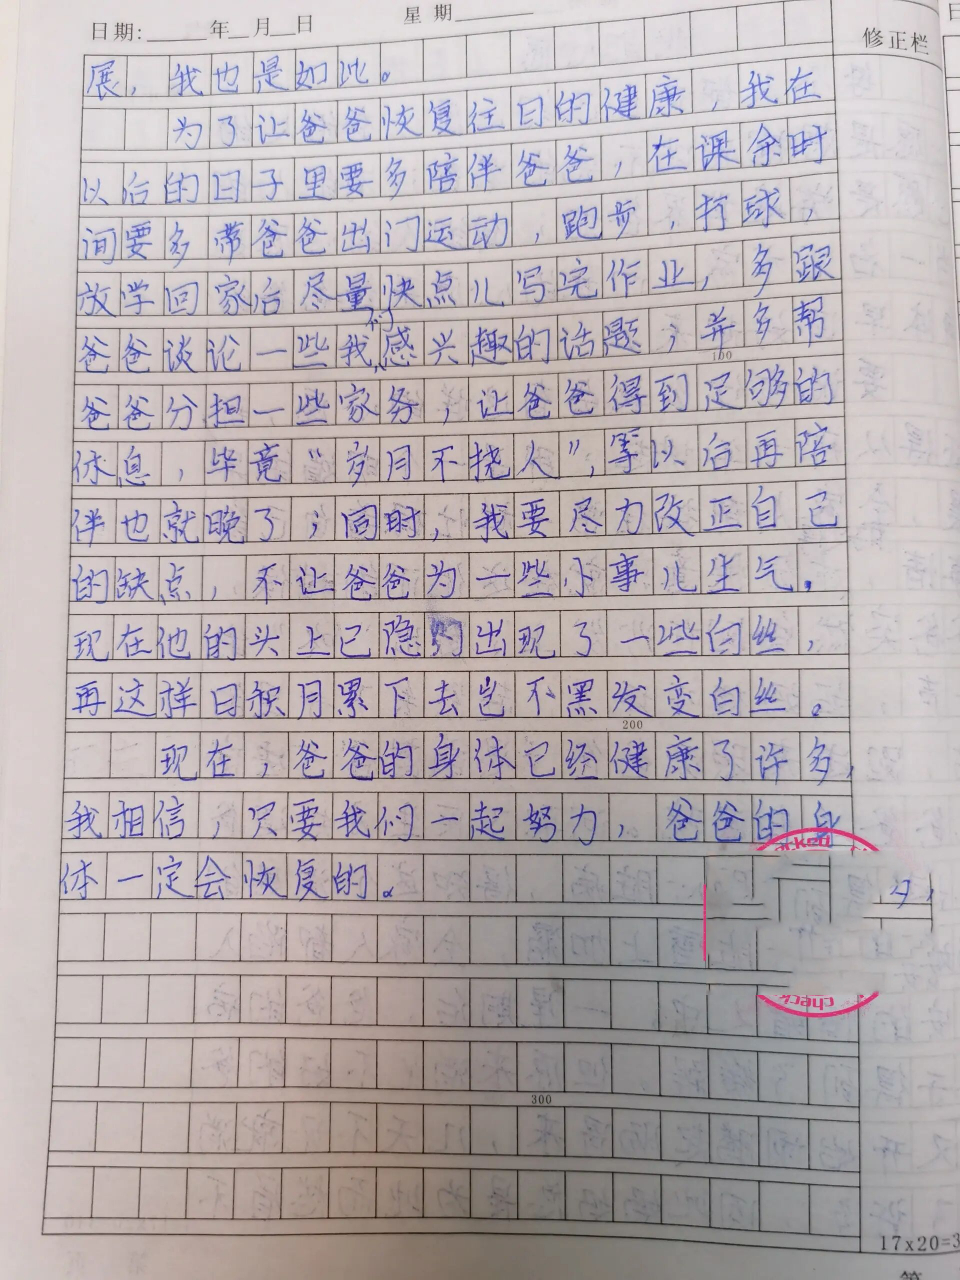 日期:　年　月　日　星期
修正栏
展，我也是如此。
为了让爸爸恢复往日的健康，我在
以后的日子里要多陪伴爸爸，在课余时
间要多带爸爸出门运动，跑步，打球，
放学回家后尽量快点儿写完作业，多跟
爸爸谈论一些我们感兴趣的话题，并多帮
100
爸爸分担一些家务，让爸爸得到足够的
休息，毕竟“岁月不挠人”，等以后再陪
伴也就晚了；同时，我要尽力改正自己
的缺点，不让爸爸为一些小事儿生气。
现在他的头上已隐约出现了一些白丝，
再这样日积月累下去岂不黑发变白丝。
200
现在，爸爸的身体已经健康了许多，
我相信，只要我们一起努力，爸爸的身
体一定会恢复的。
check
300
17x20=3